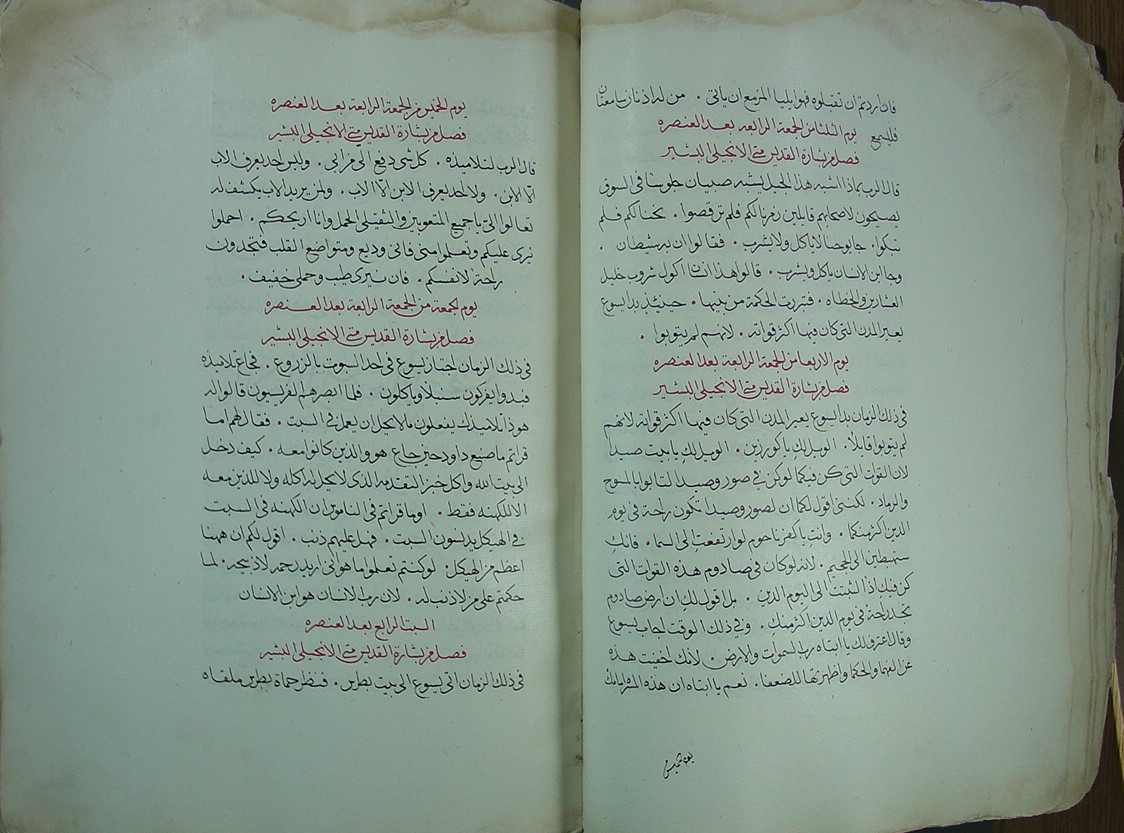 فان اردتم ان تقبلوه فهو ايليا المزمع ان ياتى . من له اذنان سامعتان
فليسمع يوم الثلثا من الجمعة الرابعه بعد العنصره
فصل من بشارة القديس متى الانجيلى البشير
قال الرب بماذا اشبه هذا الجيل يشبه صبيان جلوسا فى السوق
يصيحون لاصحابهم قايلين زمرنا لكم فلم ترقصوا . نحنا لكم فلم
تبكوا . جا يوحنا لا ياكل ولا يشرب . فقالوا ان به شيطان .
وجا ابن الانسان ياكل ويشرب . قالوا هذا انسان اكول شروب خليل
العشارين والخطاه . فتبررت الحكمة من بنيها . حينئذ بدا يسوع
يعير المدن التى كان فيها اكثر قواته . لانهم لم يتوبوا .
يوم الاربعا من الجمعة الرابعة بعد العنصره
فصل من بشارة القديس متى الانجيلى البشير
فى ذلك الزمان بدا يسوع يعير المدن التى كان فيها اكثر قواته لانهم
لم يتوبوا قايلا . الويل لكِ يا كورزين . الويل لكِ يا بيت صيدا
لان القوات التى كن فيكما لو كن فى صور وصيدا لتابوا بالمسوح
والرماد . لكننى اقول لكما ان لصور وصيدا تكون راحة فى يوم
الدين اكثر منكما . وانتِ يا كفرناحوم لو ارتفعتِ الى السما . فانكِ
ستهبطين الى الجحيم . لانه لو كان فى صادوم هذه القوات التى
كن فيكِ اذًا لثبتت الى اليوم الدين . بل اقول لك ان ارض صادوم
تجد راحة فى يوم الدين اكثر منكِ . وفى ذلك الوقت اجاب يسوع
وقال اعترف لك يا ابتاه رب السموات والارض . لانك اخفيت هذه
عن العلما والحكما واظهرتها للضعفا . نعم يا ابتاه ان هذه المسرة امامك
يوم الخميس من الجمعة الرابعة بعد العنصره
فصل من بشارة القديس متى الانجيلى البشير
قال الرب لتلاميذه . كل شى دفع الى من ابى . وليس احد يعرف الاب
الا الابن . ولا احد يعرف الابن الا الاب . ولمن يريد الاب يكشف له
تعالوا الىّ يا جميع المتعوبين والثقيلى الحمل وانا اريحكم . احملوا
نيرى عليكم وتعلموا منى فانى وديع ومتواضع القلب فتجدون
راحة لانفسكم . فان نيرى طيب وحملى خفيف .
يوم الجمعة من الجمعة الرابعة بعد العنصره
فصل من بشارة القديس متى الانجيلى البشير
فى ذلك الزمان اجتاز يسوع فى احد السبوت بالزروع . فجاع تلاميذه
فبدوا يفركون سنبلا وياكلون . فلما ابصرهم الفريسيون قالوا له
هوذا تلاميذك يفعلون ما لا يحل ان يعمل فى السبت . فقال لهم اما
قراتم ما صنع داود حين جاع هو والذين كانوا معه . كيف دخل
الى بيت الله واكل خبز التقدمه الذى لا يحل له اكله ولا للذين معه
الا للكهنه فقط . اوما قراتم فى الناموس ان الكهنه فى السبت
فى الهيكل يدنسون السبت . فهل عليهم ذنب . اقول لكم ان ههنا
اعظم من الهيكل . لو كنتم تعلموا ما هو انى اريد رحمه لا ذبيحه . لما
حكمتم على من لا ذنب له . لان رب الانسان هو ابن الانسان
السبت الرابع بعد العنصره
فصل من بشارة القديس متى الانجيلى البشير
فى ذلك الزمان اتى يسوع الى بيت بطرس . فنظر حماة بطرس ملقاه